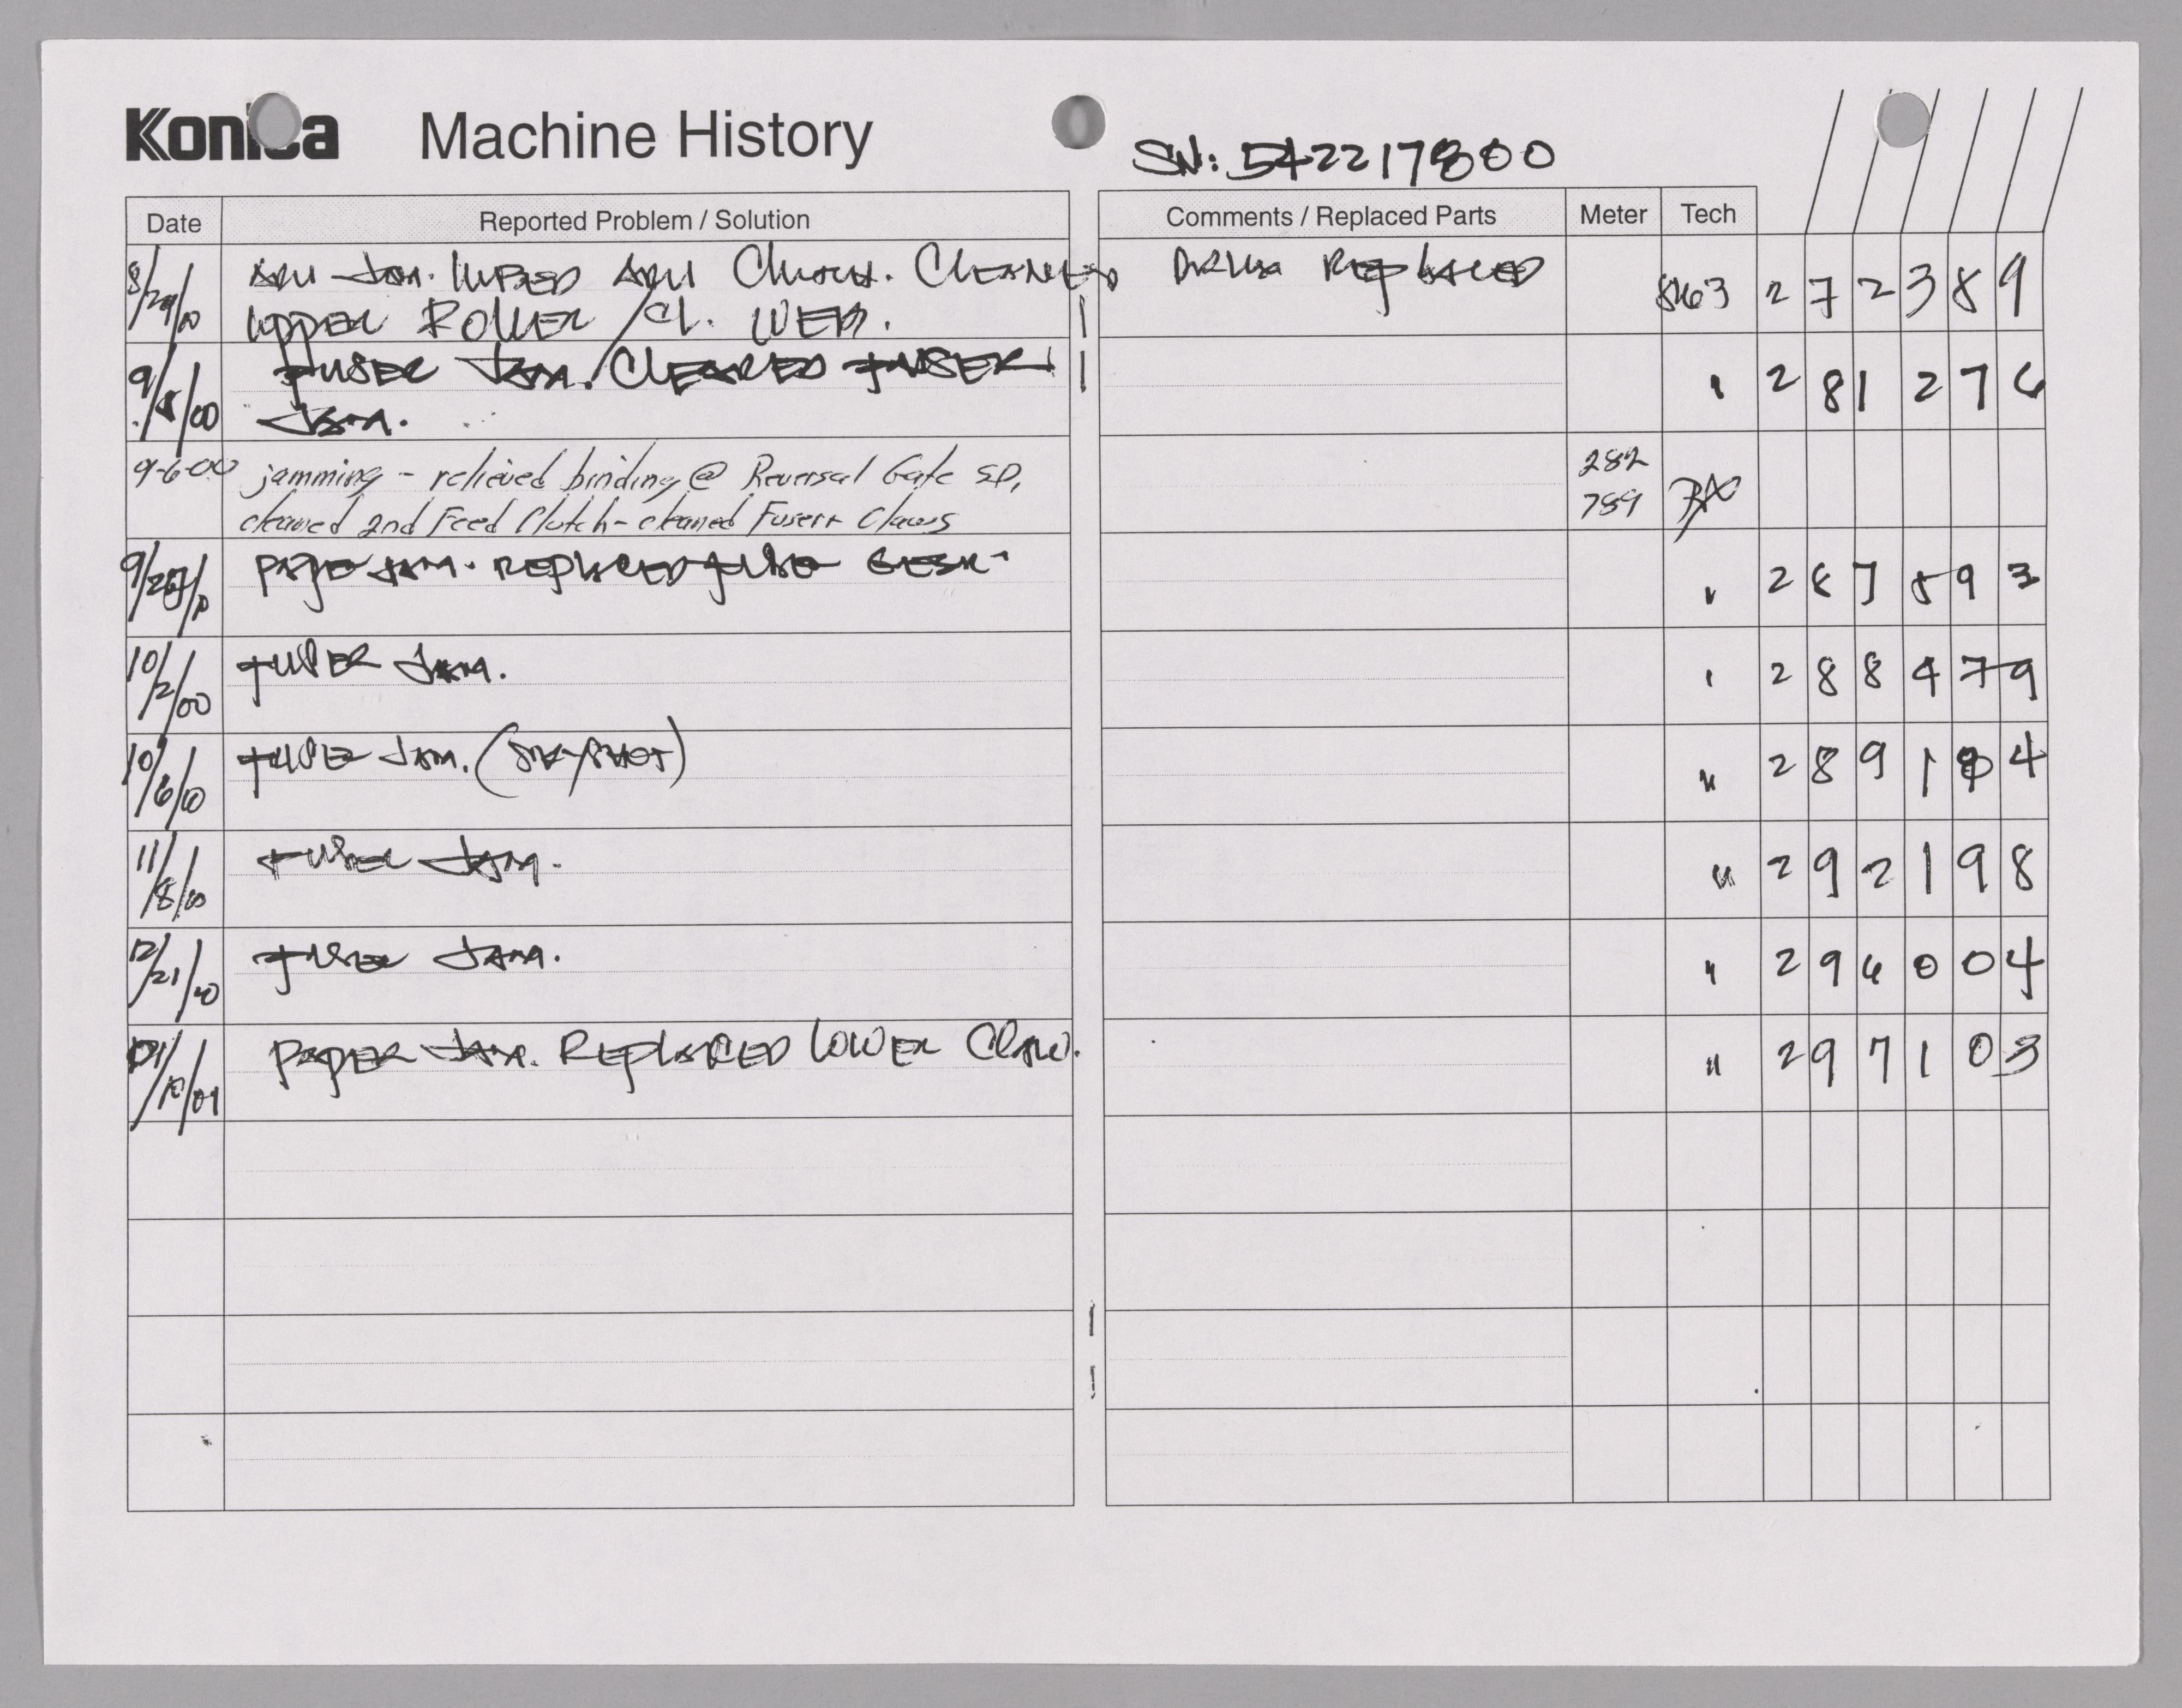 Konica Machine History
SN: 542217800
Date Reported Problem / Solution Comments / Replaced Parts Meter Tech
8/29/00 ADU JAM. LUBED ADU Clutch. CLEANED DRUM REPLACED 8163 2 7 2 3 8 9
UPPER ROLLER / Cl. WEB.
9/5/00 FUSER JAM. CLEARED FUSER " 2 8 1 2 7 6
JAM.
9-6-00 jamming - relieved binding @ Reversal Gate SD, 282
cleaned 2nd Feed Clutch - cleaned Fuser Claws 789
PAPER JAM. REPLACED FUSE GEAR. " 2 8 7 8 9 3
10/2/00 FUSER JAM. " 2 8 8 4 7 9
10/6/00 FUSER JAM. (SNAPSHOT) " 2 8 9 1 4
11/8/00 FUSER JAM. " 2 9 2 1 9 8
12/21/00 FUSER JAM. " 2 9 6 0 0 4
PAPER JAM. REPLACED LOWER CLAW. " 2 9 7 1 0 3